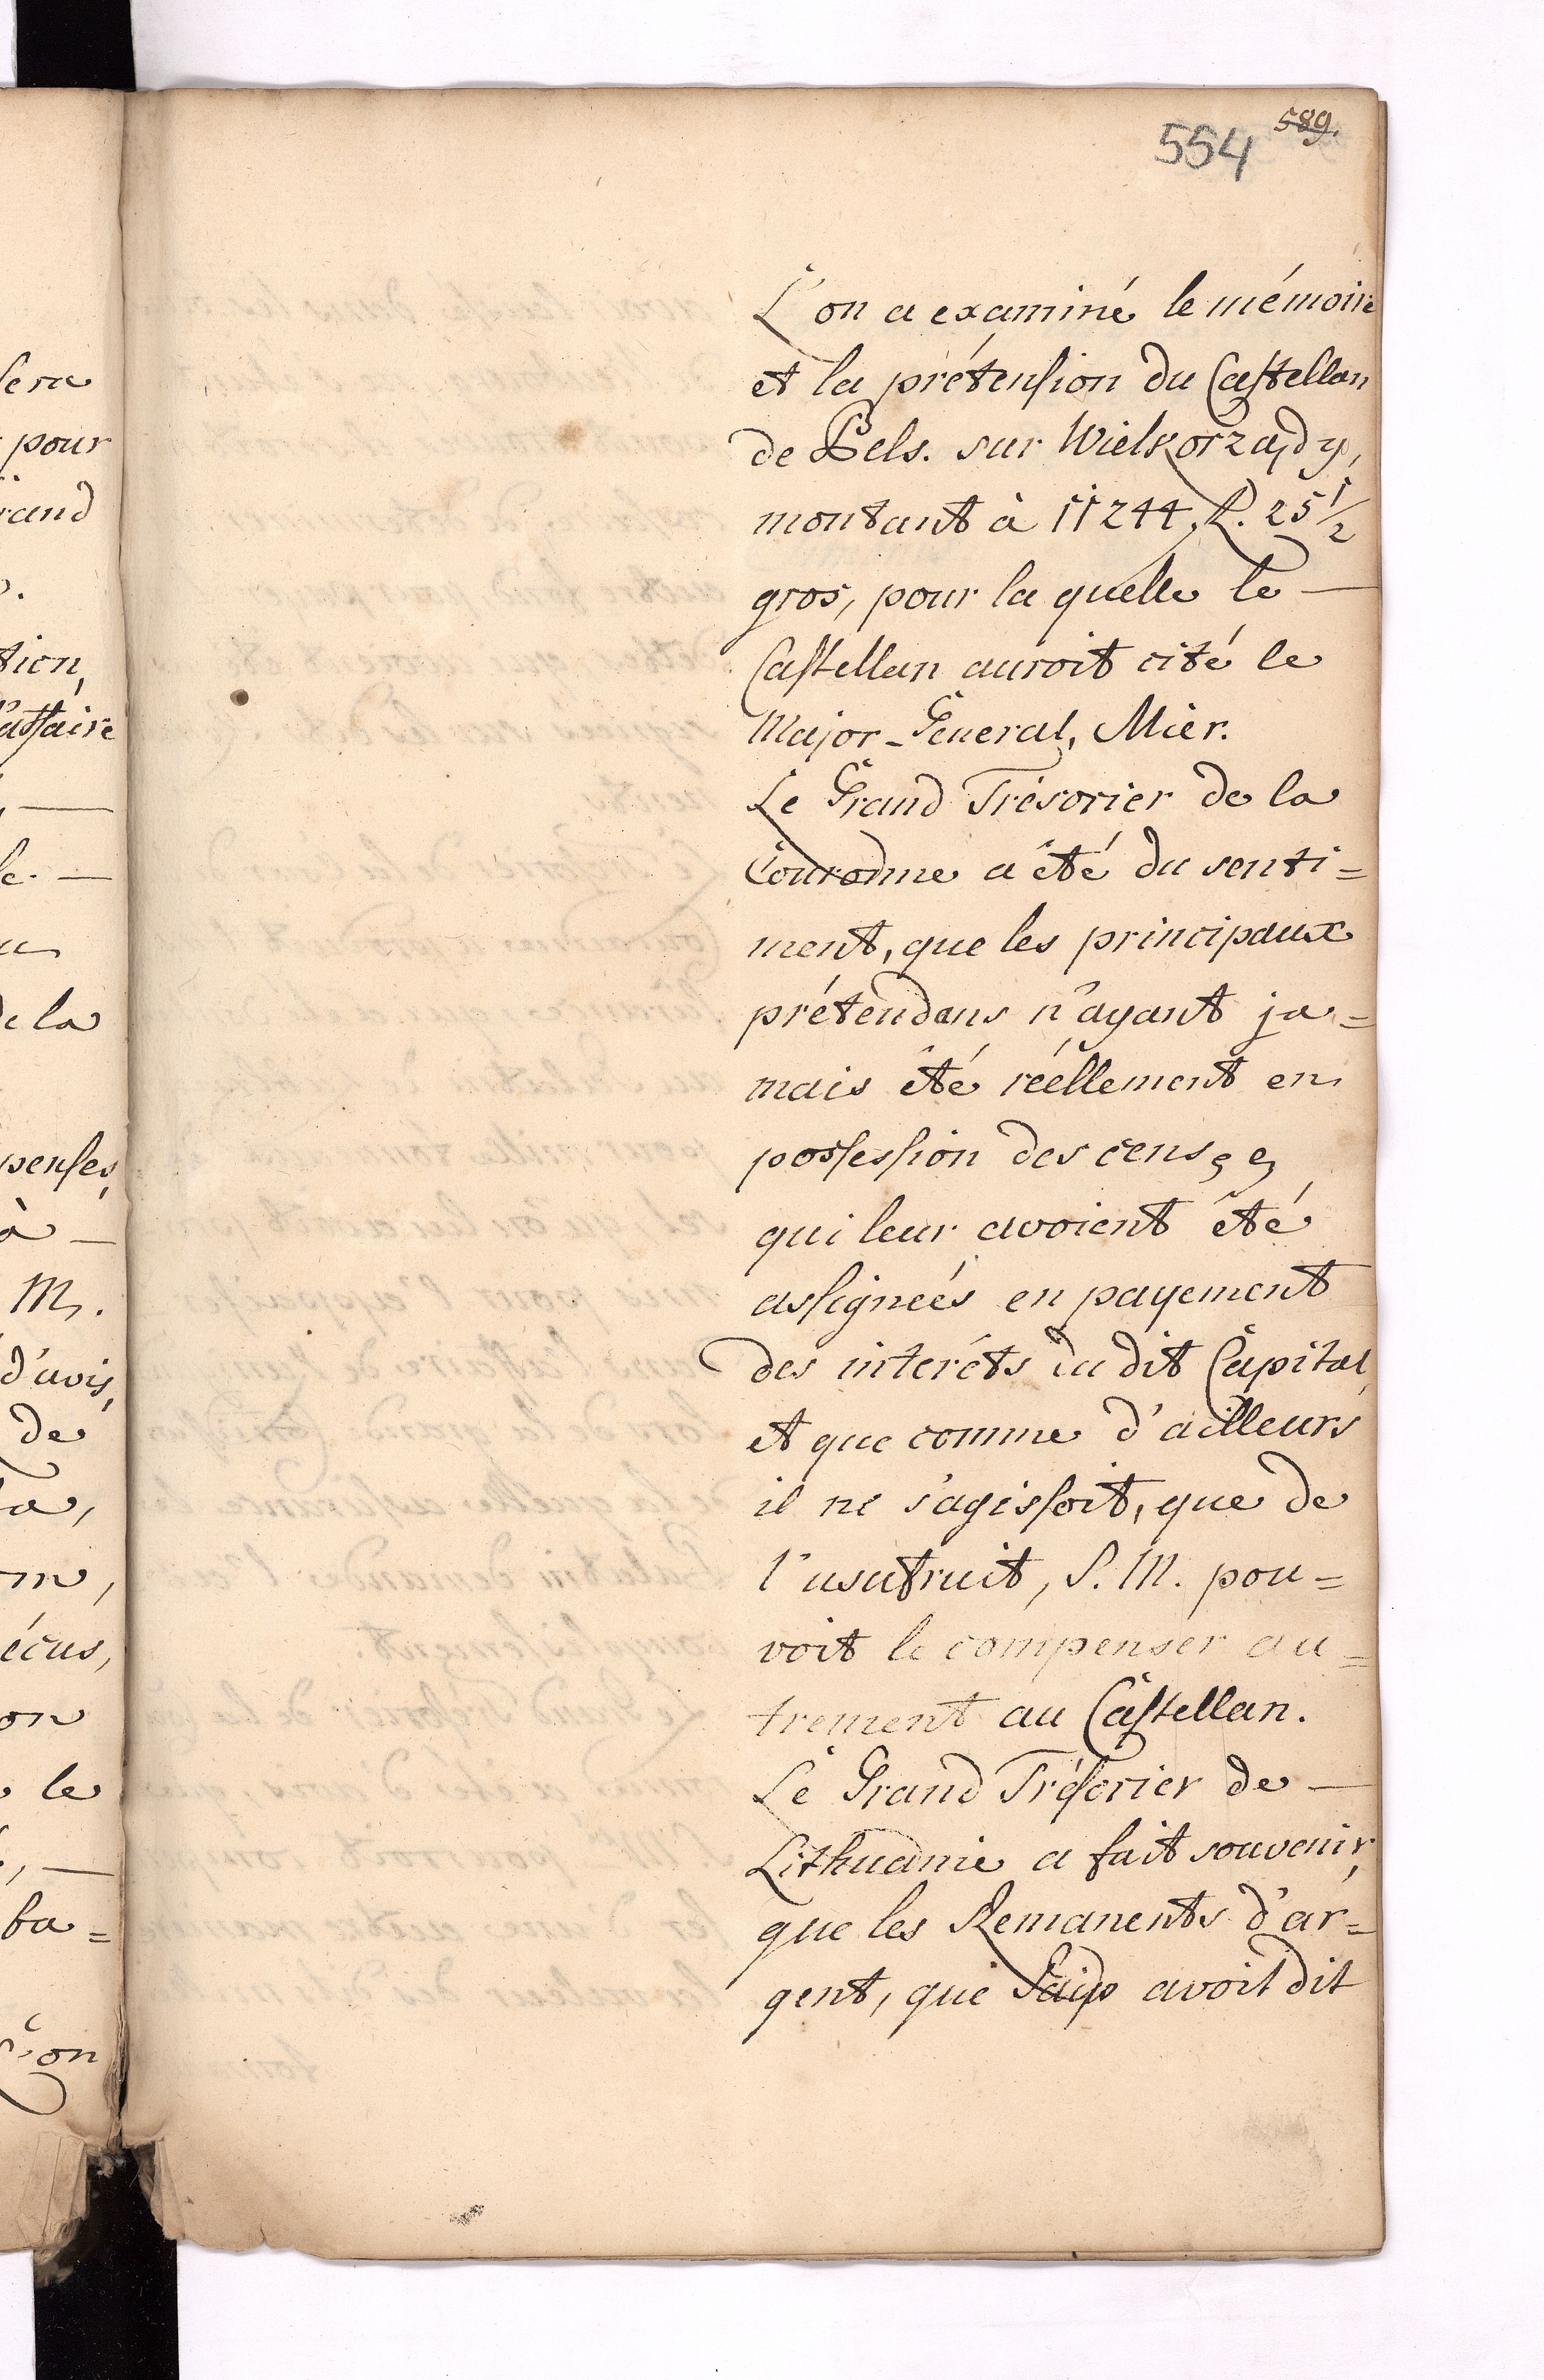 589.
554
L'on a examiné le mémoire
et la prétension du Castellan
de Bels. sur Wielkorządy,
montant à 11244. R. 25 1/2
gros, pour la quelle le —
Castellan auroit cité le
Major-General, Mier.
Le Grand Trésorier de la
Couronne a été du senti=
ment, que les principaux
prétendans n'ayant ja=
mais été réellement en
possession des
qui leur avoient été
assigneés en payement
des interéts du dit Capital,
et que comme d'ailleurs
il ne s'agissoit, que de
l'usufruit, S. M. pou=
voit le compenser au=
trement au Castellan.
Le Grand Trésorier de —
Lithuanie a fait souvenir,
que les Remanents d'ar=
gent, que avoit dit
sera
pour
rand
tion,
l'affaire
de la
penses,
à —
M.
d'avis,
de
écus,
on
le
ba=